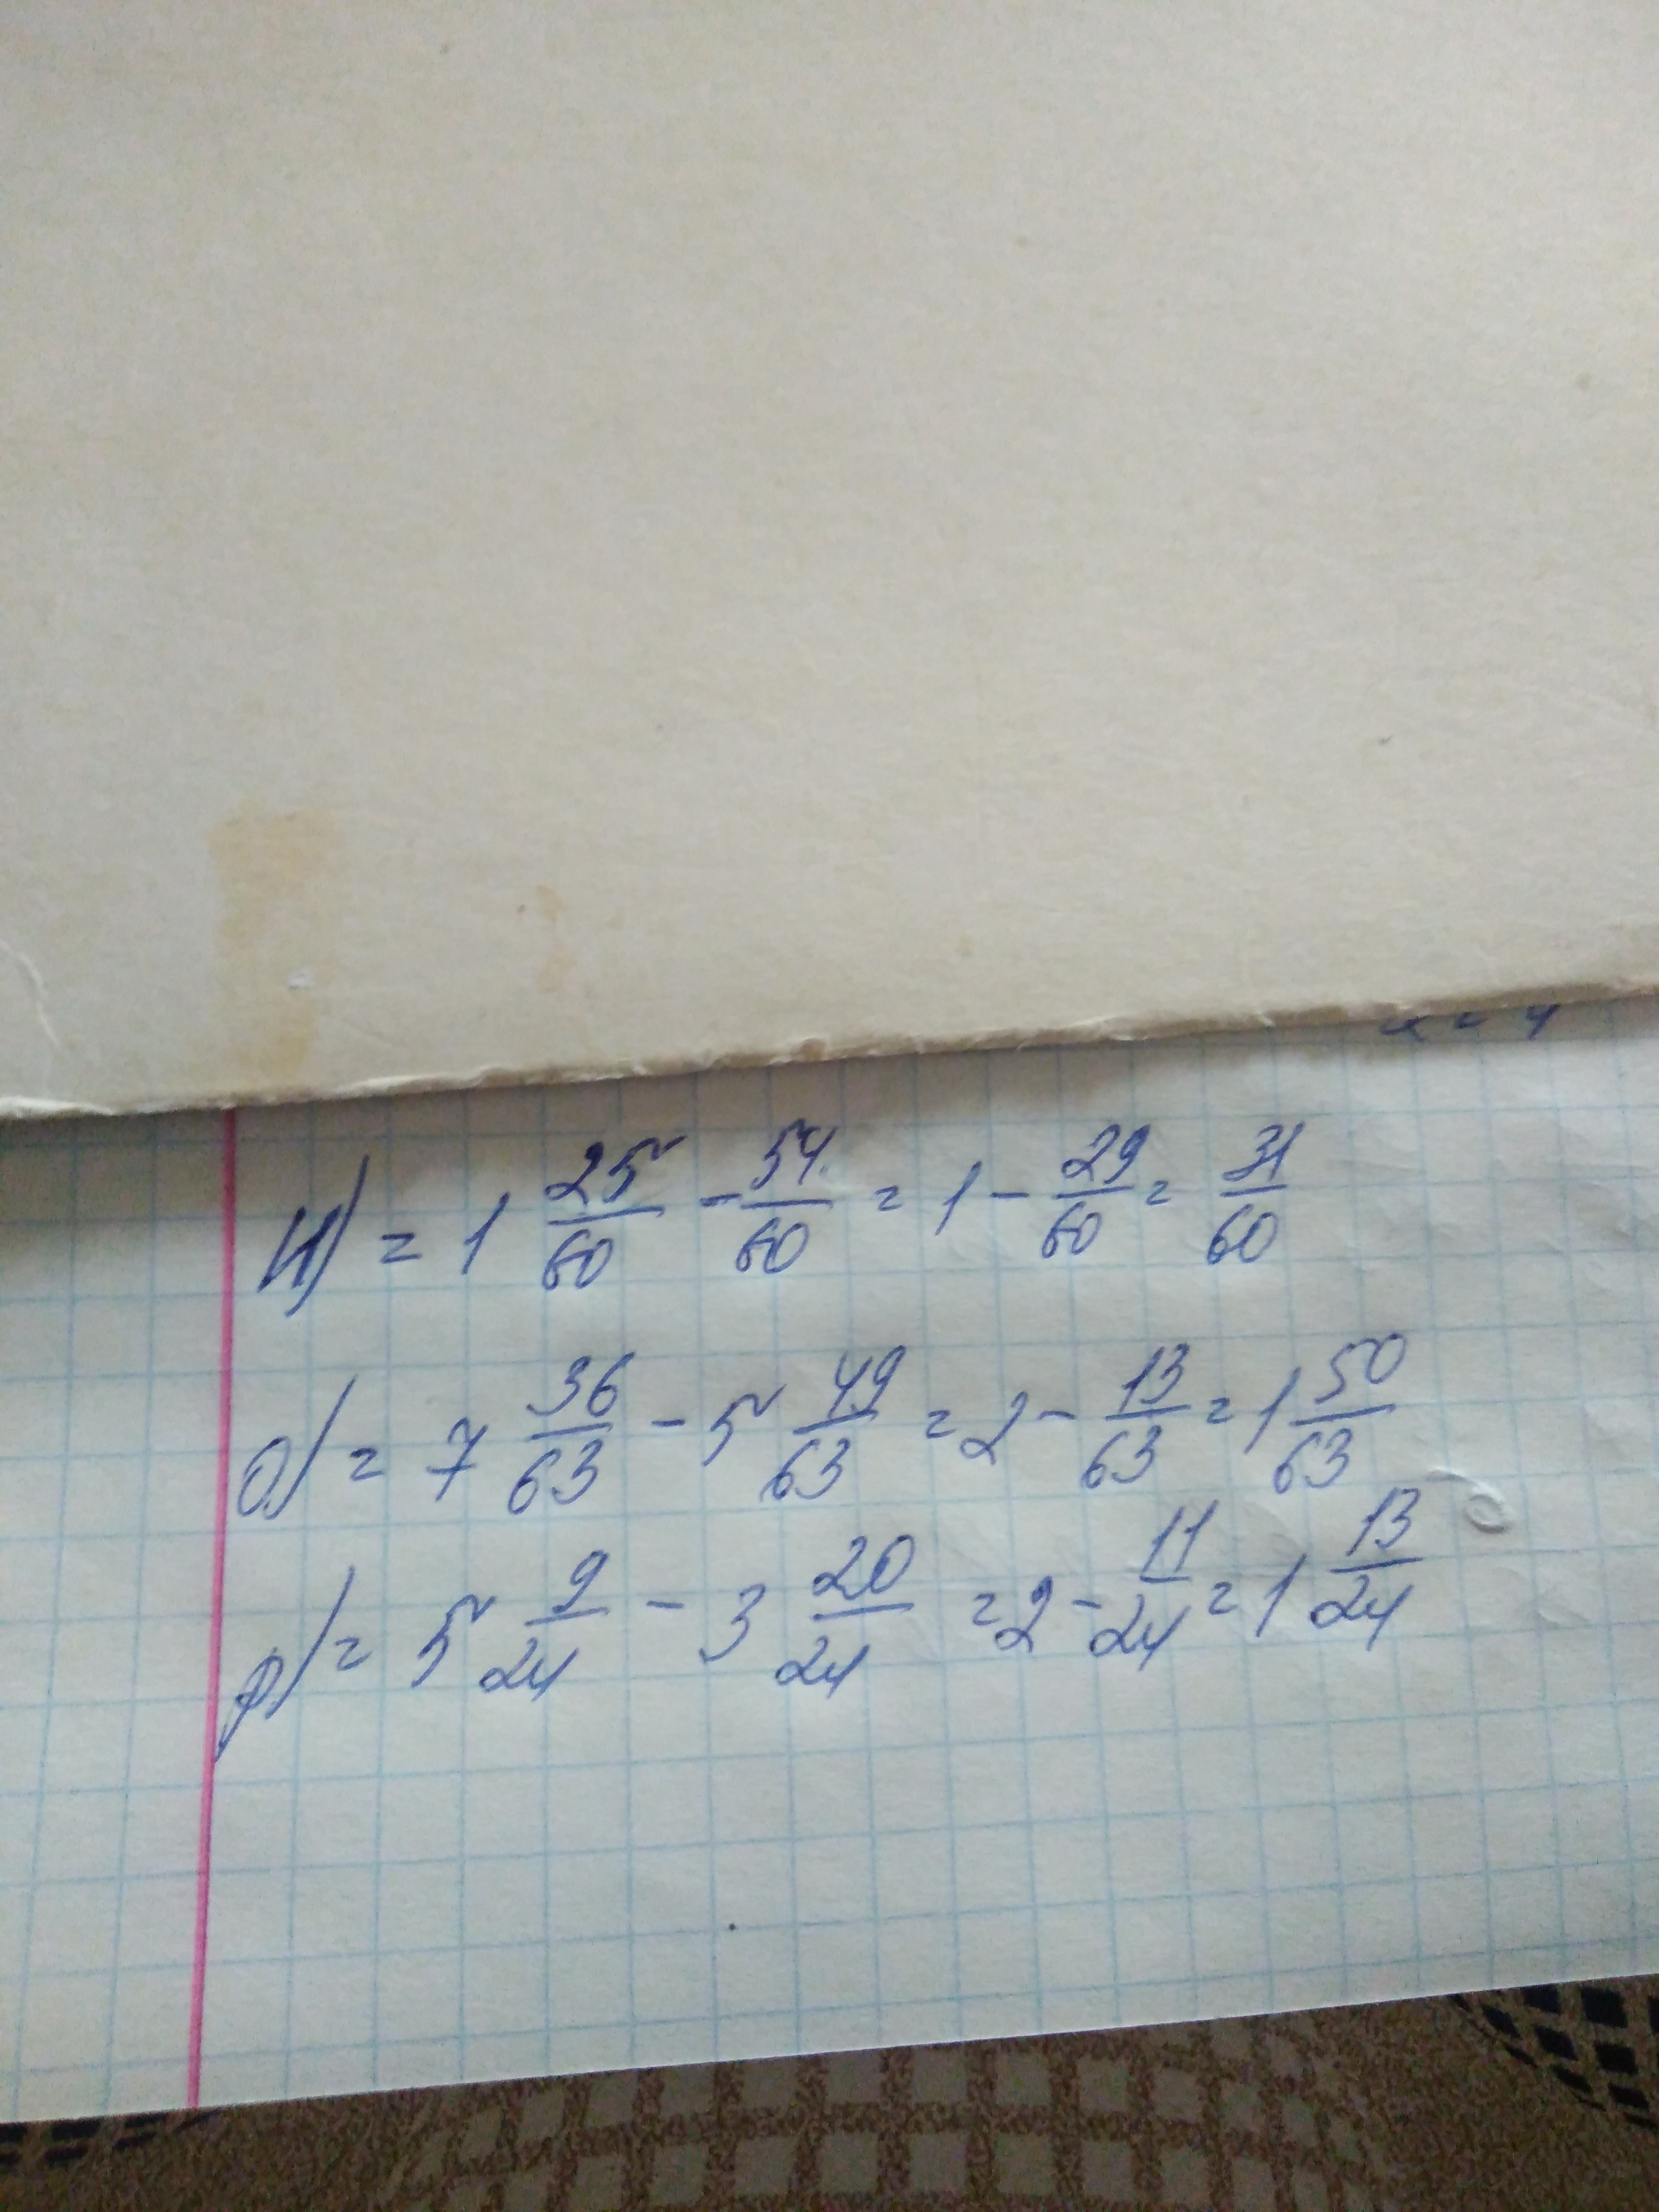 и) = 1 25/60 - 54/60 = 1 - 29/60 = 31/60
о) = 7 36/63 - 5 49/63 = 2 - 13/63 = 1 50/63
р) = 5 9/24 - 3 20/24 = 2 - 11/24 = 1 13/24